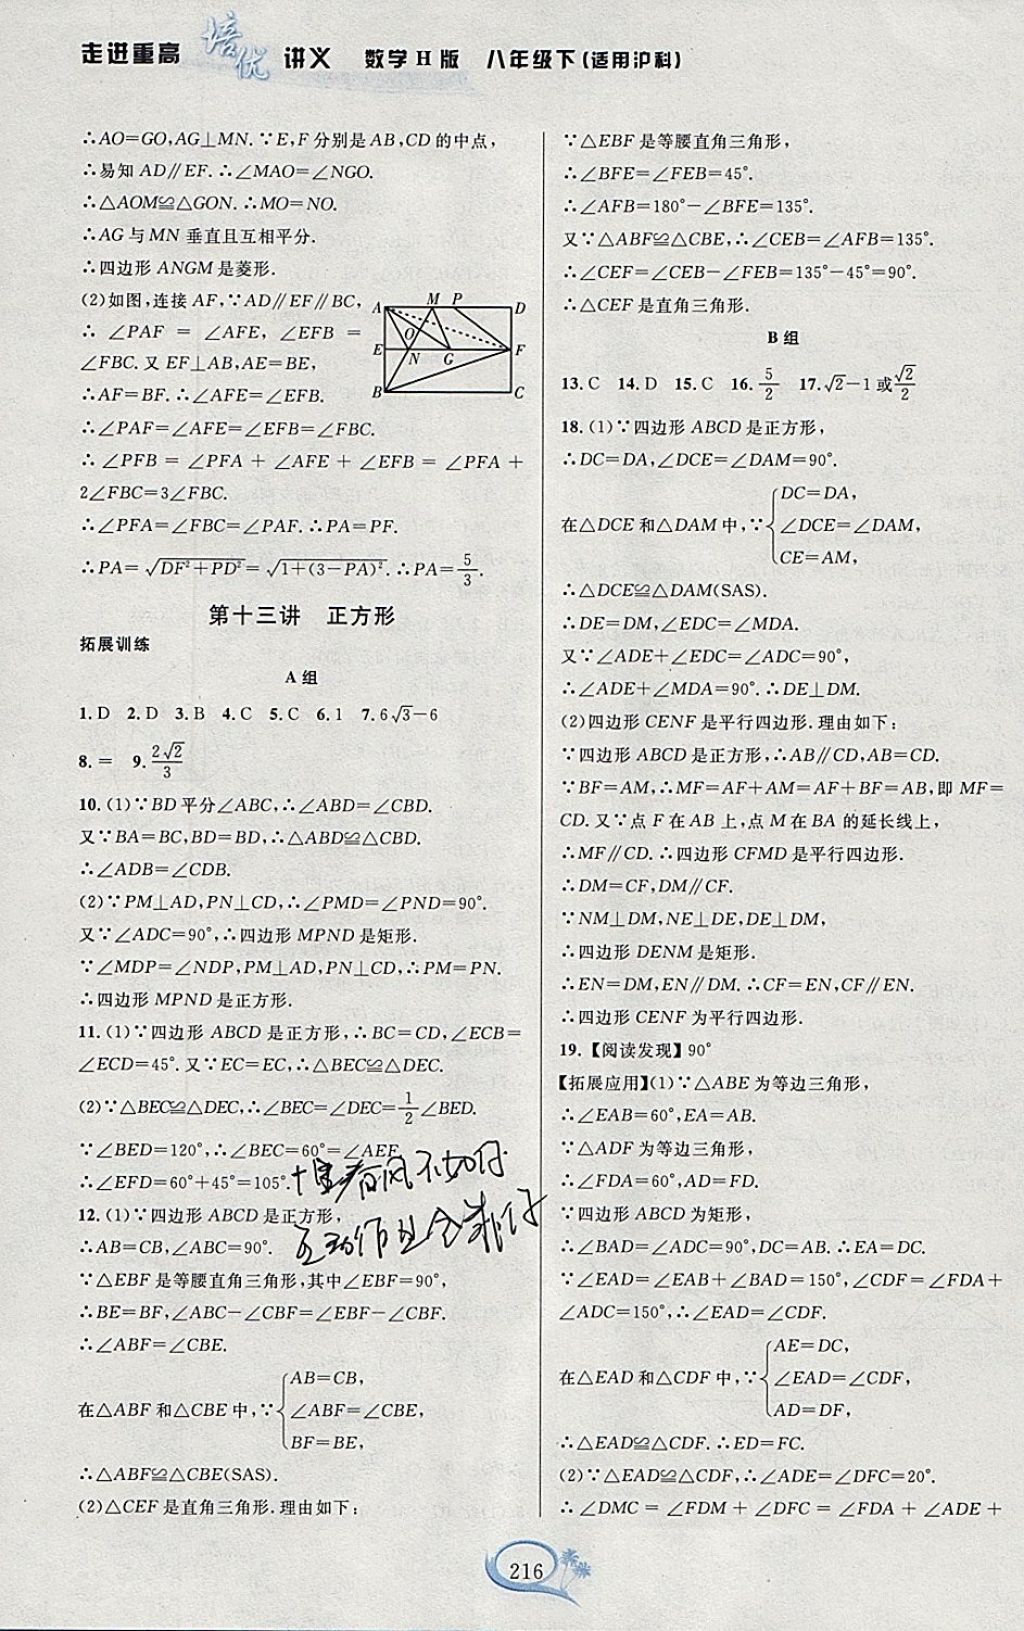 走进重高 培优 讲义 数学H版 八年级下(适用沪科)
∴AO=GO,AG⊥MN.∵E,F分别是AB,CD的中点,
∴易知AD∥EF.∴∠MAO=∠NGO.
∴△AOM≌△GON.∴MO=NO.
∴AG与MN垂直且互相平分.
∴四边形ANGM是菱形.
(2)如图,连接AF,∵AD∥EF∥BC,
∴∠PAF=∠AFE,∠EFB=
∠FBC.又EF⊥AB,AE=BE,
∴AF=BF.∴∠AFE=∠EFB.
A M P D
O
E N G F
B C
∴∠PAF=∠AFE=∠EFB=∠FBC.
∴∠PFB=∠PFA+∠AFE+∠EFB=∠PFA+
2∠FBC=3∠FBC.
∴∠PFA=∠FBC=∠PAF.∴PA=PF.
∴PA=√(DF²+PD²)=√(1+(3-PA)²).∴PA=5/3.
第十三讲 正方形
拓展训练
A组
1.D 2.D 3.B 4.C 5.C 6.1 7.6√3-6
8.= 9.2√2/3
10.(1)∵BD平分∠ABC,∴∠ABD=∠CBD.
又∵BA=BC,BD=BD,∴△ABD≌△CBD.
∴∠ADB=∠CDB.
(2)∵PM⊥AD,PN⊥CD,∴∠PMD=∠PND=90°.
又∵∠ADC=90°,∴四边形MPND是矩形.
∵∠MDP=∠NDP,PM⊥AD,PN⊥CD,∴PM=PN.
∴四边形MPND是正方形.
11.(1)∵四边形ABCD是正方形,∴BC=CD,∠ECB=
∠ECD=45°.又∵EC=EC,∴△BEC≌△DEC.
(2)∵△BEC≌△DEC,∴∠BEC=∠DEC=1/2∠BED.
∵∠BED=120°,∴∠BEC=60°=∠AEF.
∴∠EFD=60°+45°=105°.
12.(1)∵四边形ABCD是正方形,
∴AB=CB,∠ABC=90°.
∵△EBF是等腰直角三角形,其中∠EBF=90°,
∴BE=BF,∠ABC-∠CBF=∠EBF-∠CBF.
∴∠ABF=∠CBE.
在△ABF和△CBE中,∵{AB=CB,
∠ABF=∠CBE,
BF=BE,
∴△ABF≌△CBE(SAS).
(2)△CEF是直角三角形.理由如下:
∵△EBF是等腰直角三角形,
∴∠BFE=∠FEB=45°.
∴∠AFB=180°-∠BFE=135°.
又∵△ABF≌△CBE,∴∠CEB=∠AFB=135°.
∴∠CEF=∠CEB-∠FEB=135°-45°=90°.
∴△CEF是直角三角形.
B组
13.C 14.D 15.C 16.5/2 17.√2-1或√2/2
18.(1)∵四边形ABCD是正方形,
∴DC=DA,∠DCE=∠DAM=90°.
在△DCE和△DAM中,∵{DC=DA,
∠DCE=∠DAM,
CE=AM,
∴△DCE≌△DAM(SAS).
∴DE=DM,∠EDC=∠MDA.
又∵∠ADE+∠EDC=∠ADC=90°,
∴∠ADE+∠MDA=90°.∴DE⊥DM.
(2)四边形CENF是平行四边形.理由如下:
∵四边形ABCD是正方形,∴AB∥CD,AB=CD.
∵BF=AM,∴MF=AF+AM=AF+BF=AB,即MF=
CD.又∵点F在AB上,点M在BA的延长线上,
∴MF∥CD.∴四边形CFMD是平行四边形.
∴DM=CF,DM∥CF.
∵NM⊥DM,NE⊥DE,DE⊥DM,
∴四边形DENM是矩形.
∴EN=DM,EN∥DM.∴CF=EN,CF∥EN.
∴四边形CENF为平行四边形.
19.【阅读发现】90°
【拓展应用】(1)∵△ABE为等边三角形,
∴∠EAB=60°,EA=AB.
∵△ADF为等边三角形,
∴∠FDA=60°,AD=FD.
∵四边形ABCD为矩形,
∴∠BAD=∠ADC=90°,DC=AB.∴EA=DC.
∵∠EAD=∠EAB+∠BAD=150°,∠CDF=∠FDA+
∠ADC=150°,∴∠EAD=∠CDF.
在△EAD和△CDF中,∵{AE=DC,
∠EAD=∠CDF,
AD=DF,
∴△EAD≌△CDF.∴ED=FC.
(2)∵△EAD≌△CDF,∴∠ADE=∠DFC=20°.
∴∠DMC=∠FDM+∠DFC=∠FDA+∠ADE+
216